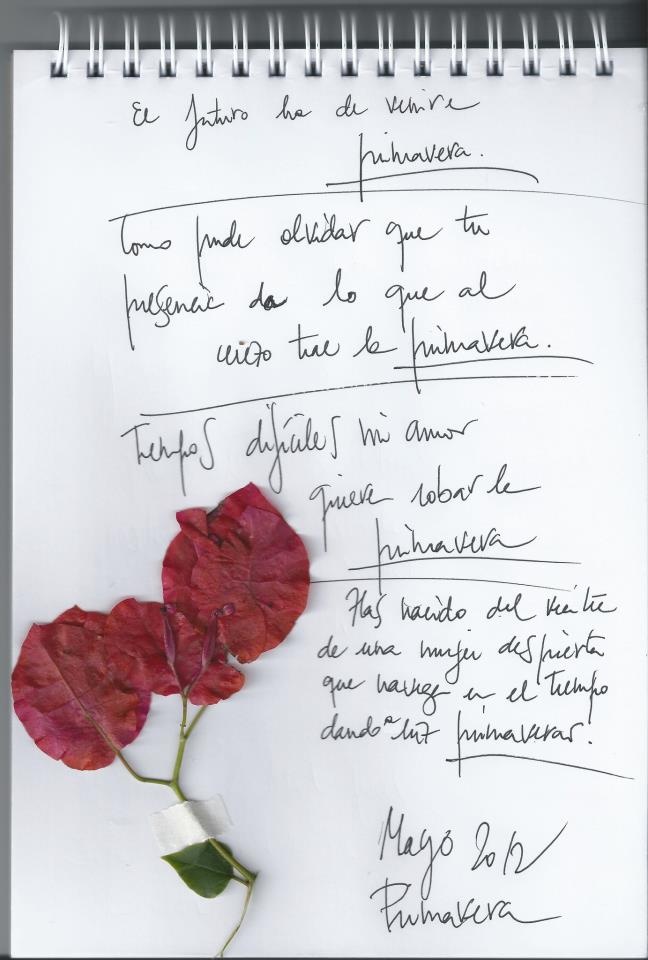 El futuro ha de venire
primavera.
Como pude olvidar que tu
presencia da lo que al
cuerzo trae la primavera.
Tiempos difíciles mi amor
quiere robar la
primavera
Has nacido del vientre
de una mujer despierta
que navega en el tiempo
dando a luz primaveras.
Mayo 2012
Primavera